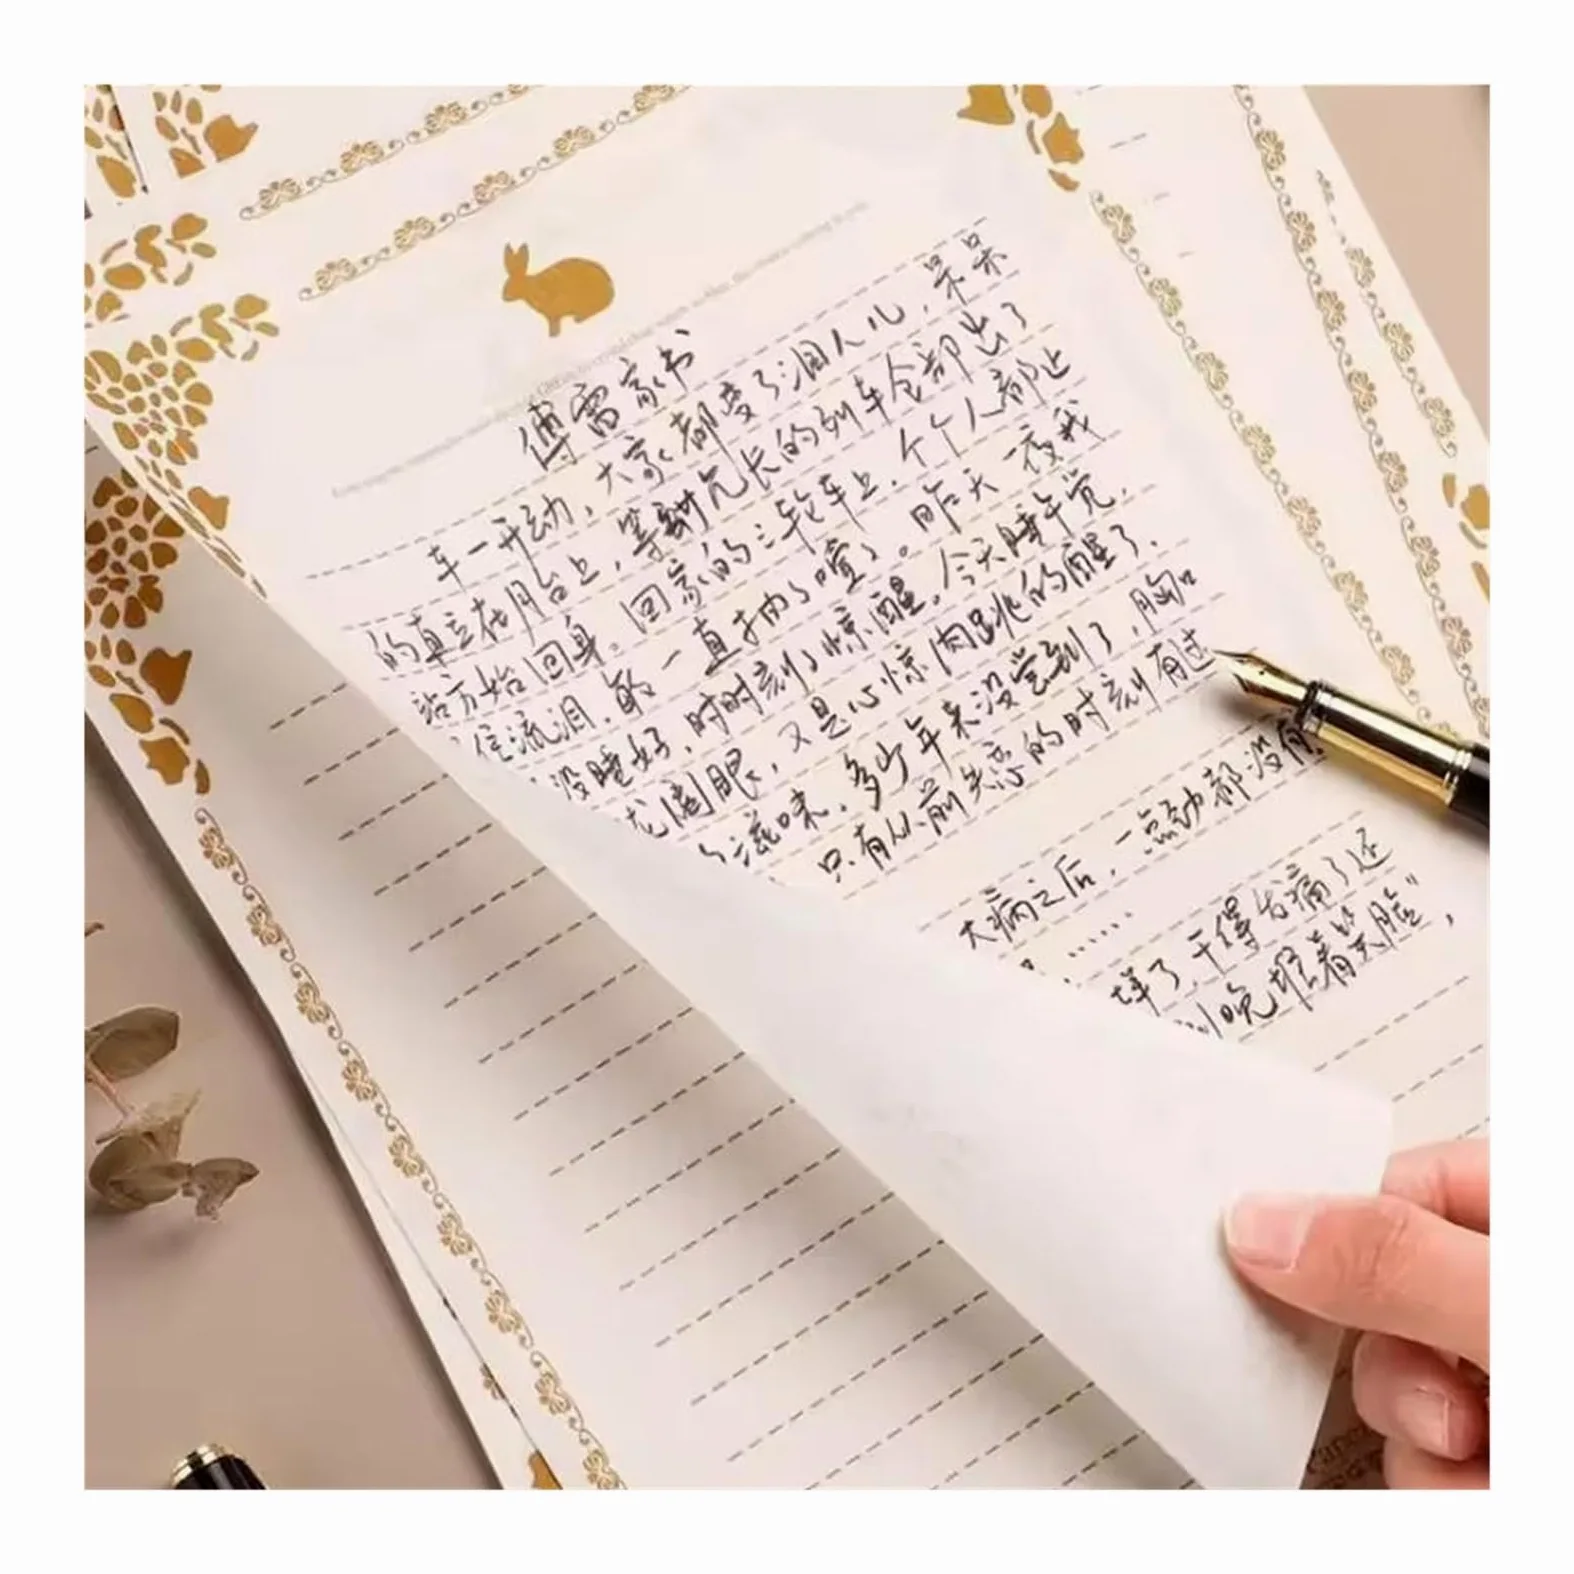 傅雷家书
车一开动，大家都变了泪人儿，呆呆
的直立在月台上，等到冗长的列车全部出了
站方始回身。回家的三轮车上，个个人都止
住流泪，敏一直抽抽噎噎。昨天一夜我
没睡好，时时刻刻惊醒。今天睡午觉，
眼，又是心惊肉跳的醒了。
滋味，多少年来没尝到了，胸口
只有从前失恋的时刻有过
大病之后，一点劲都没有
……
样了，干得舌痛了还
到晚堆着笑脸，